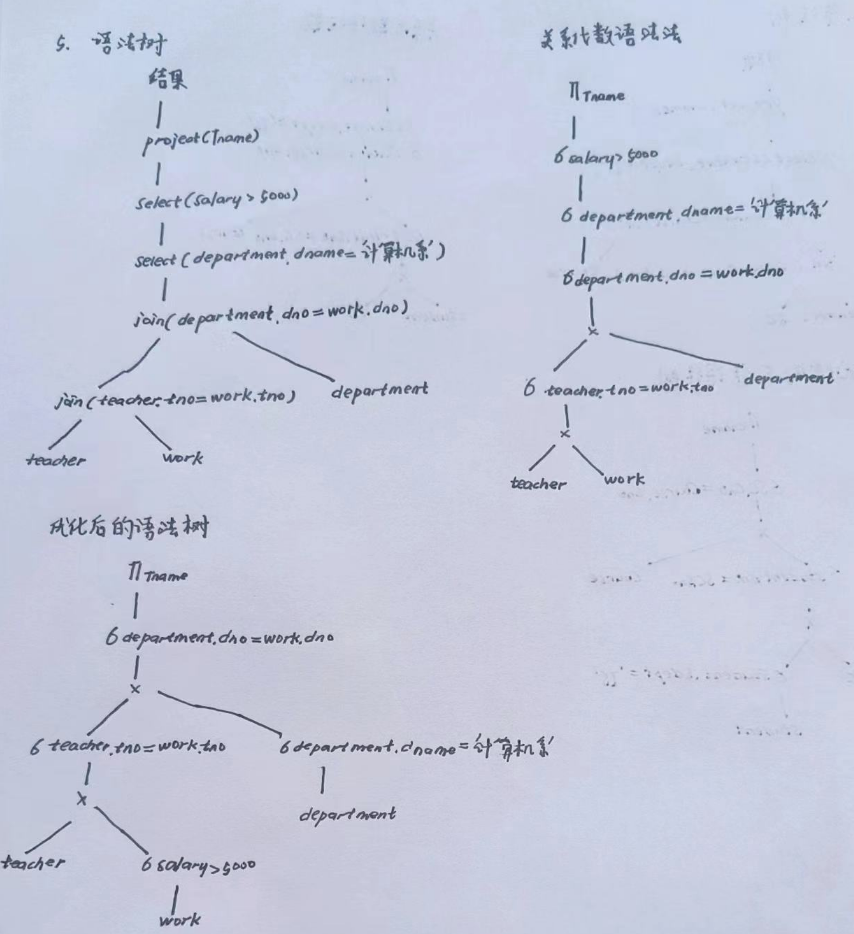 5. 语法树
结果
project(Tname)
select(salary > 5000)
select(department.dname='计算机系')
join(department.dno=work.dno)
join(teacher.tno=work.tno)
department
teacher
work
关系代数语法法
Π Tname
6 salary>5000
6 department.dname='计算机系'
6 department.dno=work.dno
×
6 teacher.tno=work.tno
department
×
teacher
work
优化后的语法树
Π Tname
6 department.dno=work.dno
×
6 teacher.tno=work.tno
6 department.dname='计算机系'
×
department
teacher
6 salary>5000
work